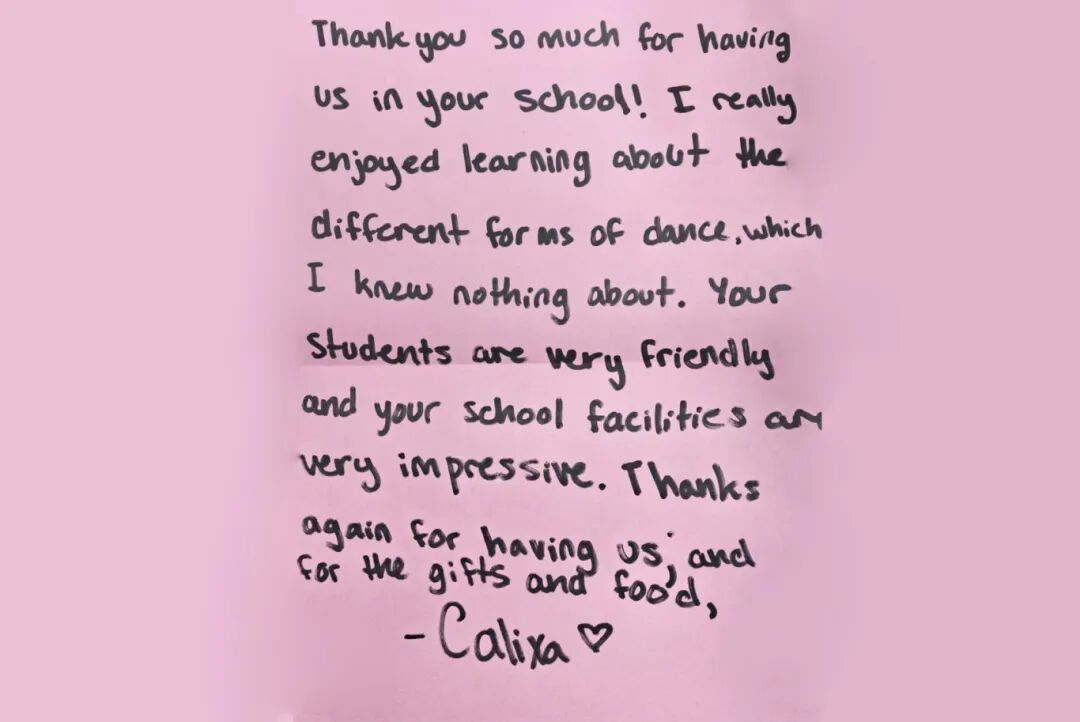 Thank you so much for having
us in your school! I really
enjoyed learning about the
different forms of dance, which
I knew nothing about. Your
students are very friendly
and your school facilities are
very impressive. Thanks
again for having us, and
for the gifts and food,
- Calixa ♡